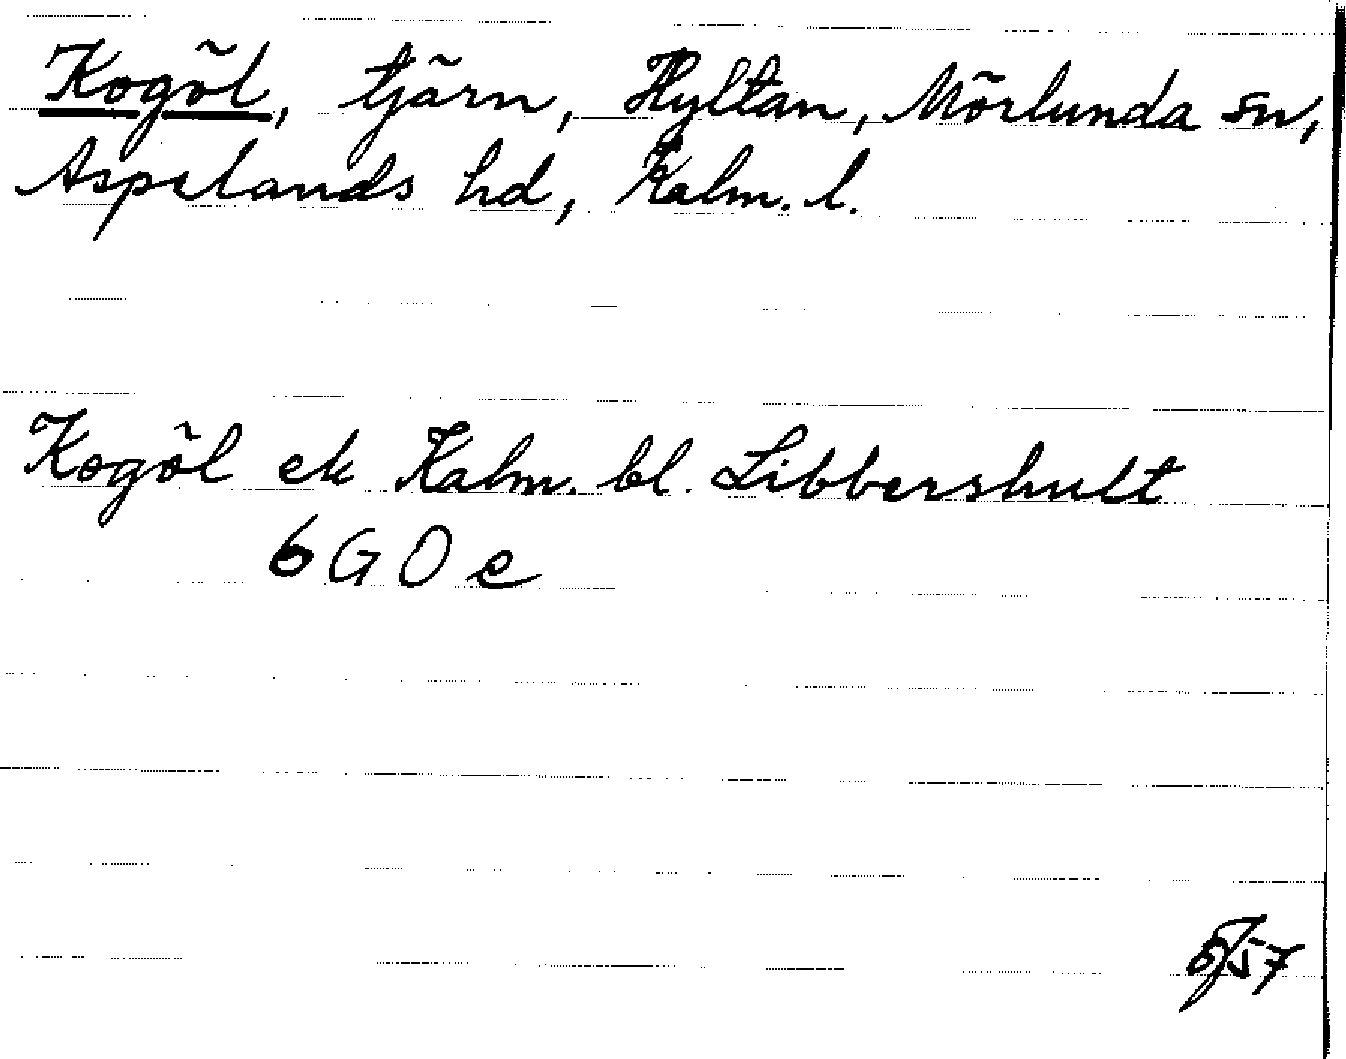 Kogöl, tjärn, Hyltan, Mörlunda sn,
Aspelands hd, Kalm. l.
Kogöl ek Kalm. bl. Libbershult
6 G O e